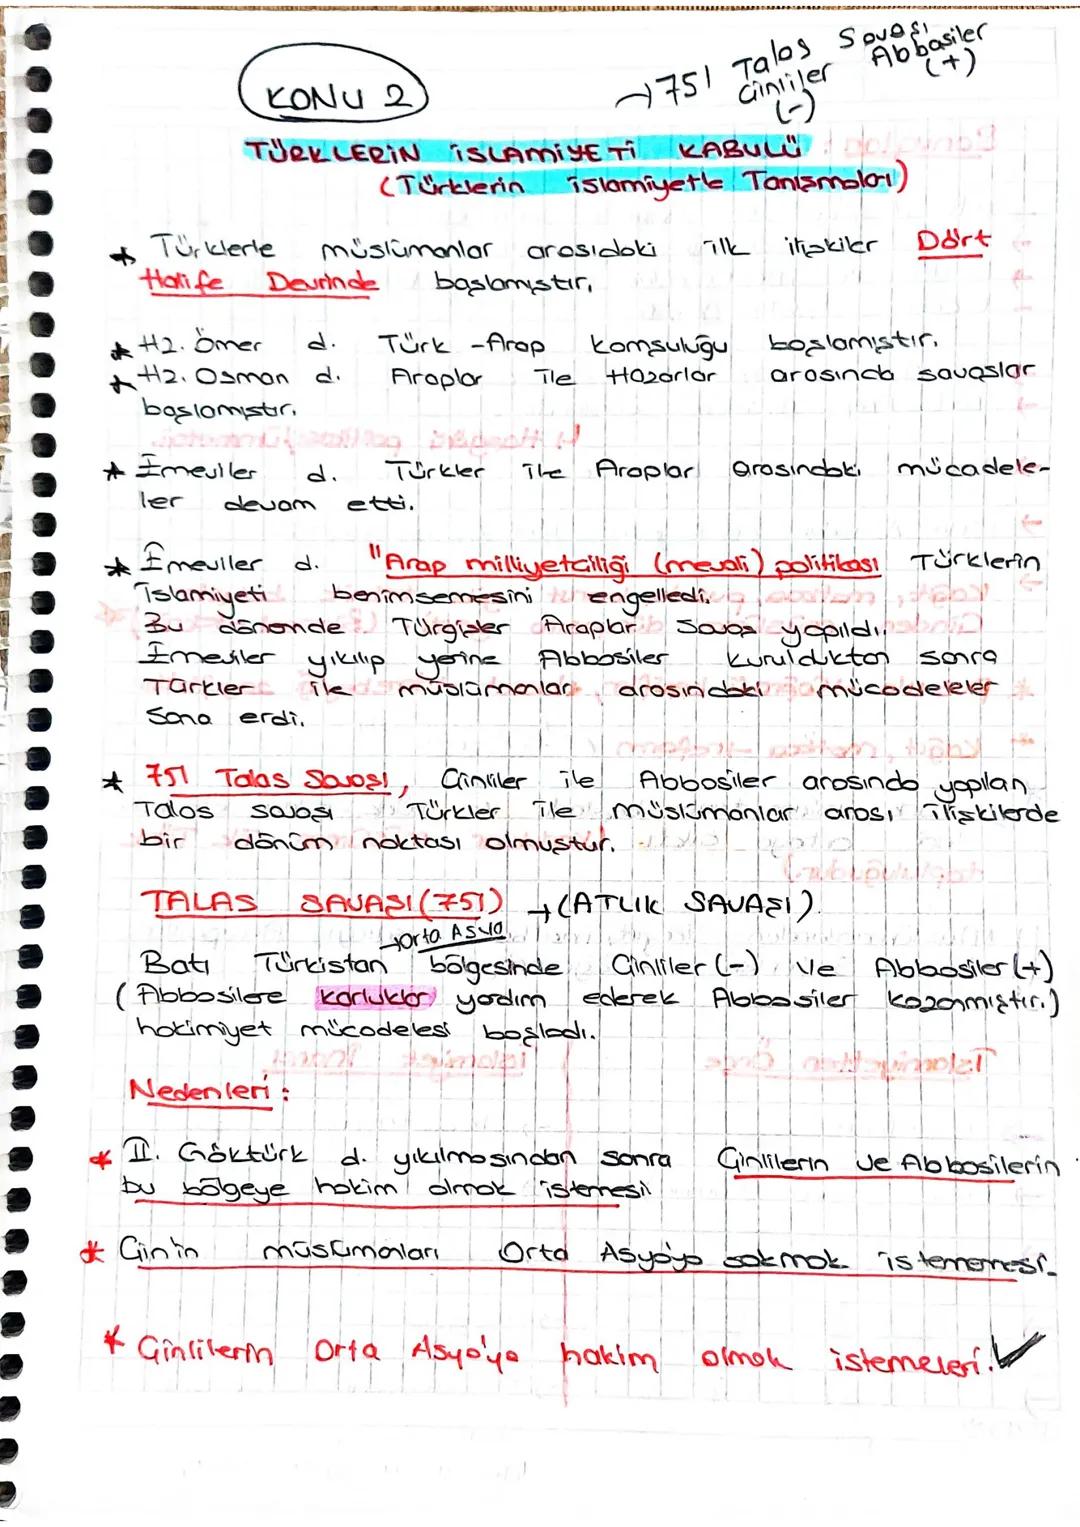 KONU 2
→751 Talas Savaşı
Çinliler Abbasiler
(-) (+)
TÜRKLERİN İSLAMİYETİ KABULÜ
(Türklerin islamiyetle Tanışmaları)
* Türklerle müslümanlar arasıdaki ilk ilişkiler Dört
Halife Devrinde başlamıştır.
* Hz. Ömer d. Türk -Arap komşuluğu başlamıştır.
* Hz. Osman d. Araplar ile Hazarlar arasında savaşlar
başlamıştır.
* Emeviler d. Türkler ile Araplar arasındaki mücadele-
ler devam etti.
* Emeviler d. "Arap milliyetçiliği (mevali) politikası Türklerin
islamiyeti benimsemesini engelledi.
Bu dönemde Türgişler Araplar Savaş yapıldı.
Emeviler yıkılıp yerine Abbasiler kurulduktan sonra
Türkler ile müslümanlar arasındaki mücadeleler
sona erdi.
* 751 Talas Savaşı, Çinliler ile Abbasiler arasında yapılan
Talas savaşı Türkler ile müslümanlar arası ilişkilerde
bir dönüm noktası olmuştur.
TALAS SAVAŞI (751) → (ATLIK SAVAŞI)
→Orta Asya
Batı Türkistan bölgesinde Çinliler (-) ve Abbasiler (+)
(Abbasilere karluklar yardım ederek Abbasiler kazanmıştır.)
hakimiyet mücadelesi başladı.
Nedenleri :
* II. Göktürk d. yıkılmasından sonra Çinlilerin ve Abbasilerin
bu bölgeye hakim olmak istemesi
* Çin'in müslümanları Orta Asya'ya sokmak istememesi.
* Çinlilerin Orta Asya'ya hakim olmak istemeleri.